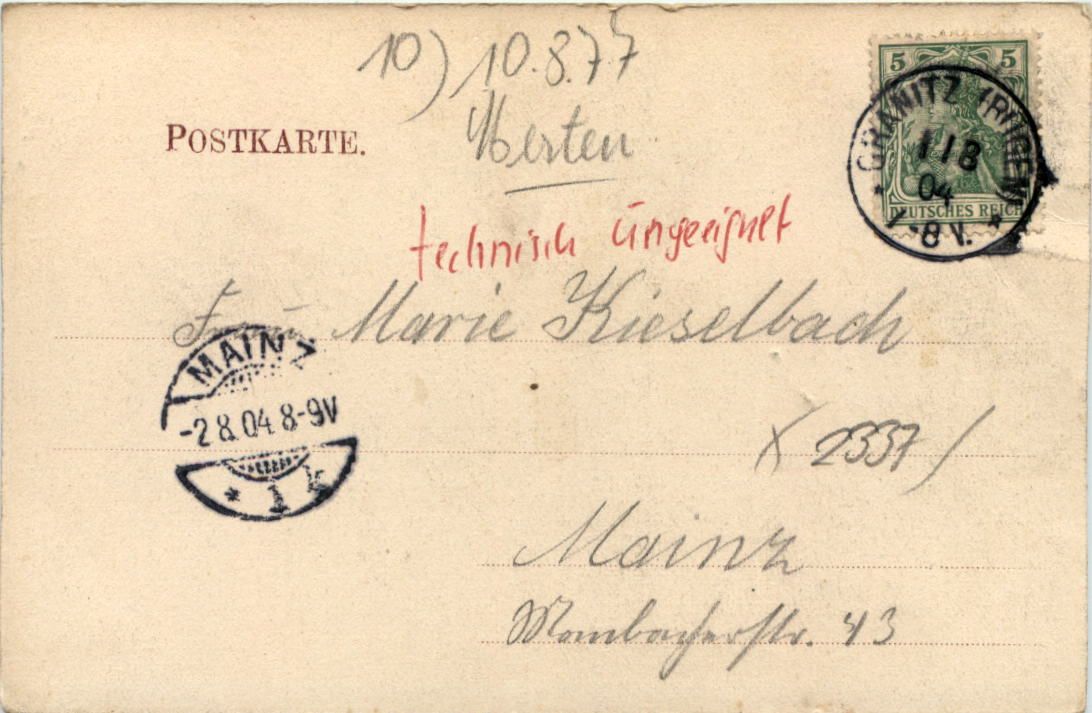 10) 10.8.77
POSTKARTE.
Merten
5 5
DEUTSCHES REICH
GRANITZ (RÜGEN)
1 / 8
04
7-8 V.
technisch ungeeignet
Frau Marie Kieselbach
MAINZ
-2 8.04 8-9V
* 1 k
2337
Mainz
Mombacherstr. 43